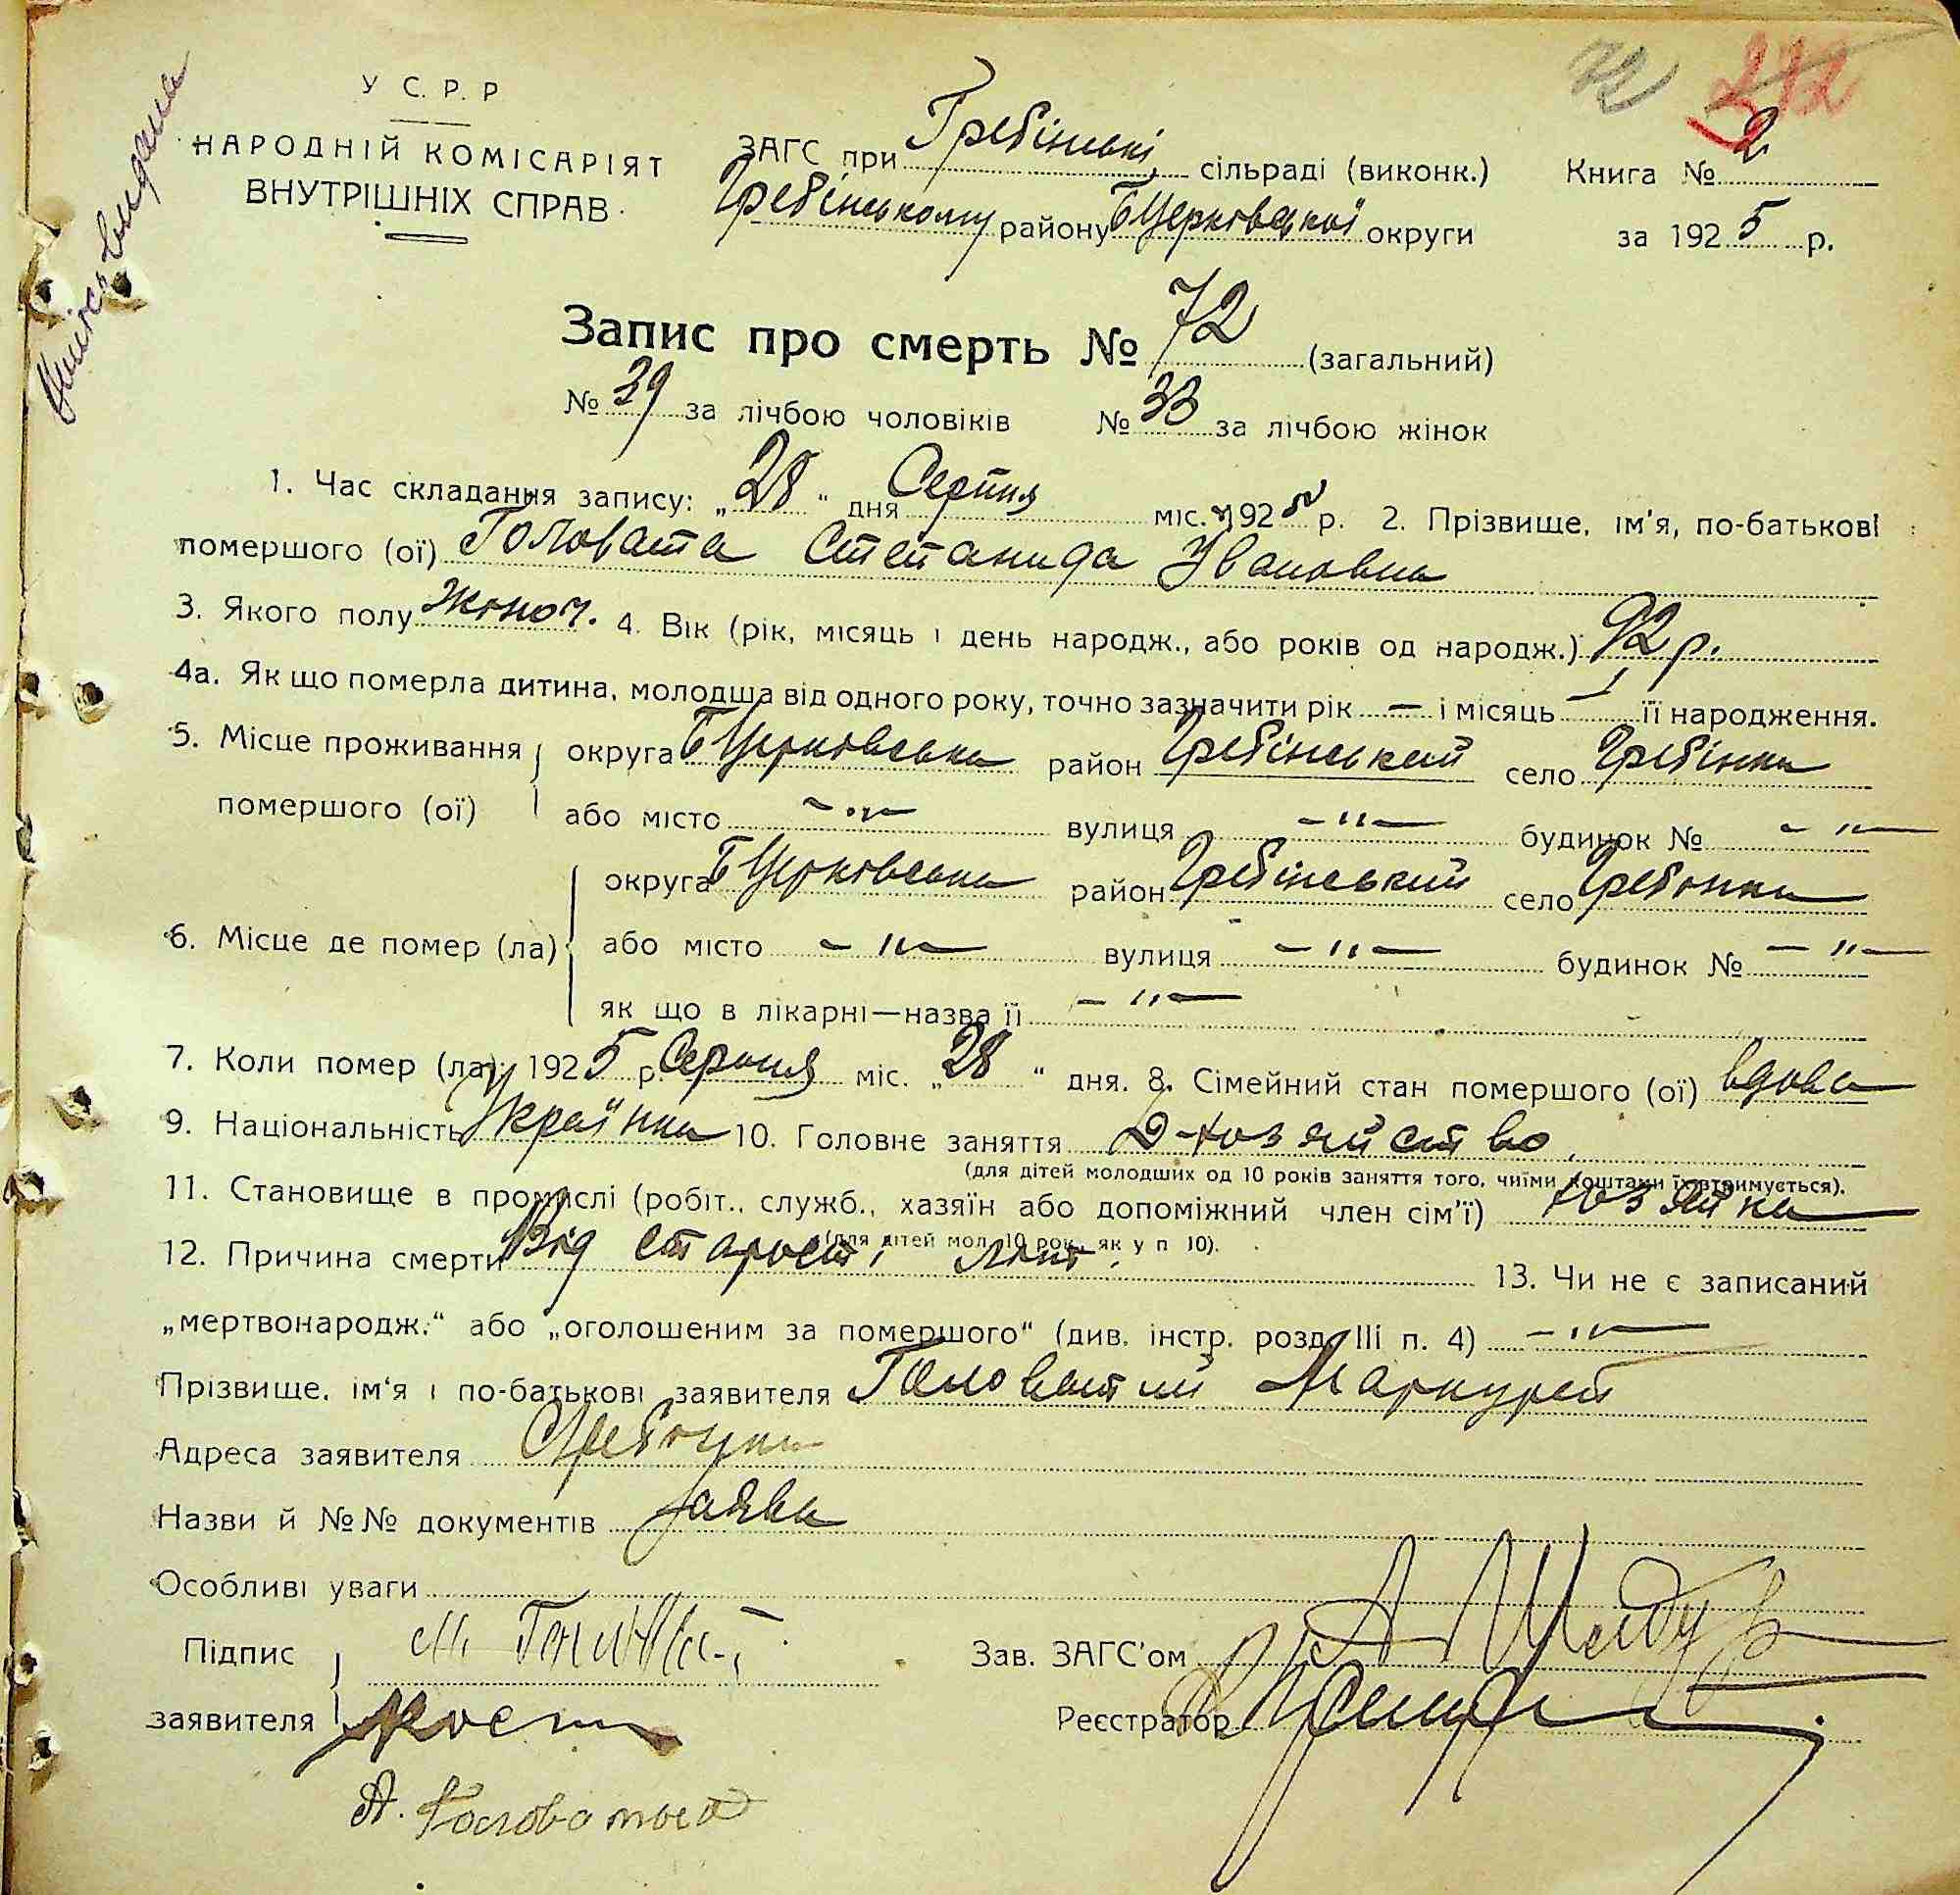 72 212
Випись видана
У С. Р. Р
НАРОДНІЙ КОМІСАРІЯТ
ВНУТРІШНІХ СПРАВ
ЗАГС при Гребінські сільраді (виконк.) Книга № 2
Гребінському району БЦерковської округи за 1925 р.
Запис про смерть № 72 (загальний)
№ 39 за лічбою чоловіків № 33 за лічбою жінок
1. Час складання запису: „28“ дня Серпня міс. 1925 р. 2. Прізвище, ім'я, по-батькові
помершого (ої) Головата Степанида Ивановна
3. Якого полу жіноч. 4. Вік (рік, місяць і день народж., або років од народж.) 92 р.
4а. Як що померла дитина, молодша від одного року, точно зазначити рік — і місяць — її народження.
5. Місце проживання округа БЦерковська район Гребінський село Гребінка
помершого (ої) або місто —"— вулиця —"— будинок № —"—
округа БЦерковська район Гребінський село Гребонка
6. Місце де помер (ла) або місто —"— вулиця —"— будинок № —"—
як що в лікарні—назва її —"—
7. Коли помер (ла): 1925 р. Серпня міс. „28“ дня. 8. Сімейний стан помершого (ої) вдова
9. Національність Українка 10. Головне заняття Д-хозяйство.
(для дітей молодших од 10 років заняття того, чиїми коштами їх втримується).
11. Становище в промислі (робіт., служб., хазяїн або допоміжний член сім'ї) хозяйка
(для дітей мол. 10 рок., як у п 10).
12. Причина смерти Від старості літ. 13. Чи не є записаний
„мертвонародж.“ або „оголошеним за помершого“ (див. інстр. розд. III п. 4) —"—
Прізвище, ім'я і по-батькові заявителя Головатий Маркурей
Адреса заявителя
Назви й №№ документів Заява
Особливі уваги
Підпис Зав. ЗАГС'ом
заявителя Реєстратор
А. Головатий